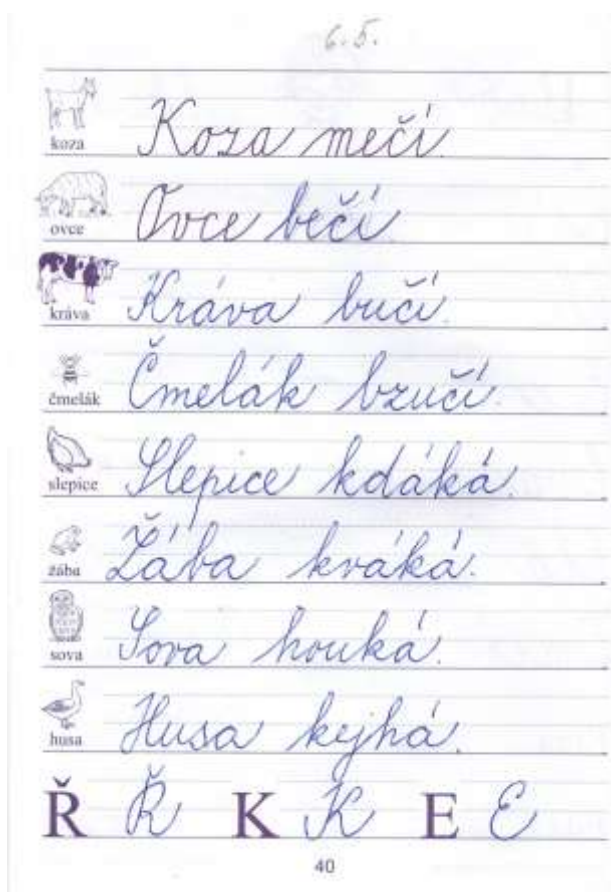 6.5.
koza Koza mečí.
ovce Ovce bečí.
kráva Kráva bučí.
čmelák Čmelák bzučí.
slepice Slepice kdáká.
žába Žába kváká.
sova Sova houká.
husa Husa kejhá.
Ř Ř K K E E
40